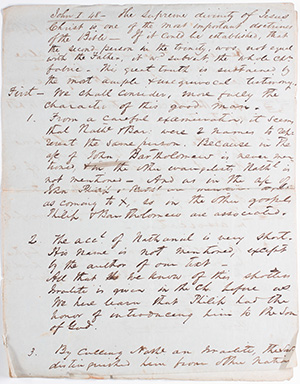 John 1 48 - The Supreme divinity of Jesus
Christ is one of the most important doctrines
of the Bible - If it could be established, that
the second person in the trinity, were not equal
with the Father, it wd subvert the whole
This great truth is sustained by
the most ample & unequivocal testimony.
First - We shall consider, more fully the
character of this good man.
1. From a careful examination, it seems
that Nathl & Bar. were 2 names to rep
resent the same person. Because in the
of John Bartholomew is never men
tioned in the other evangelists Nathl is
not mentioned - And as in the
John Philip & Nathl
as coming to X, so in the other gospels
Philip & Bartholomew are associated.
2. The acct of Nathanael is very short.
His name is not mentioned, except
by the author of our text -
All that we know of this
Israelite is given in the Ch before us
We here learn that Philip had the
honor of introducing him to the Son
of God
3. By calling Nathl an Israelite
distinguished him from other nations